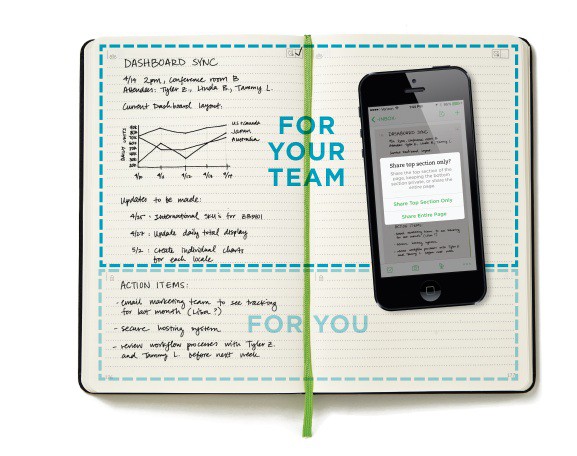 DASHBOARD SYNC
4/19 2pm, Conference room B
Attendees: Tyler Z., Linda B., Tammy L.
Current Dashboard layout.
DAILY VISITS
US/Canada
Japan
Australia
4/10
4/12
Updates to be made:
4/25 - International SKU's for
4/27: Update daily total display
5/2: create individual charts
for each locale
FOR
YOUR
TEAM
ACTION ITEMS:
- email marketing team to see tracking
for last month (Lisa?)
- secure hosting system
- review workflow processes with Tyler Z.
and Tammy L. before next week
FOR YOU
DASHBOARD SYNC
Share top section only?
Share the top section of the
page, keeping the bottom
section private, or share the
entire page.
Share Top Section Only
Share Entire Page
ACTION ITEMS: